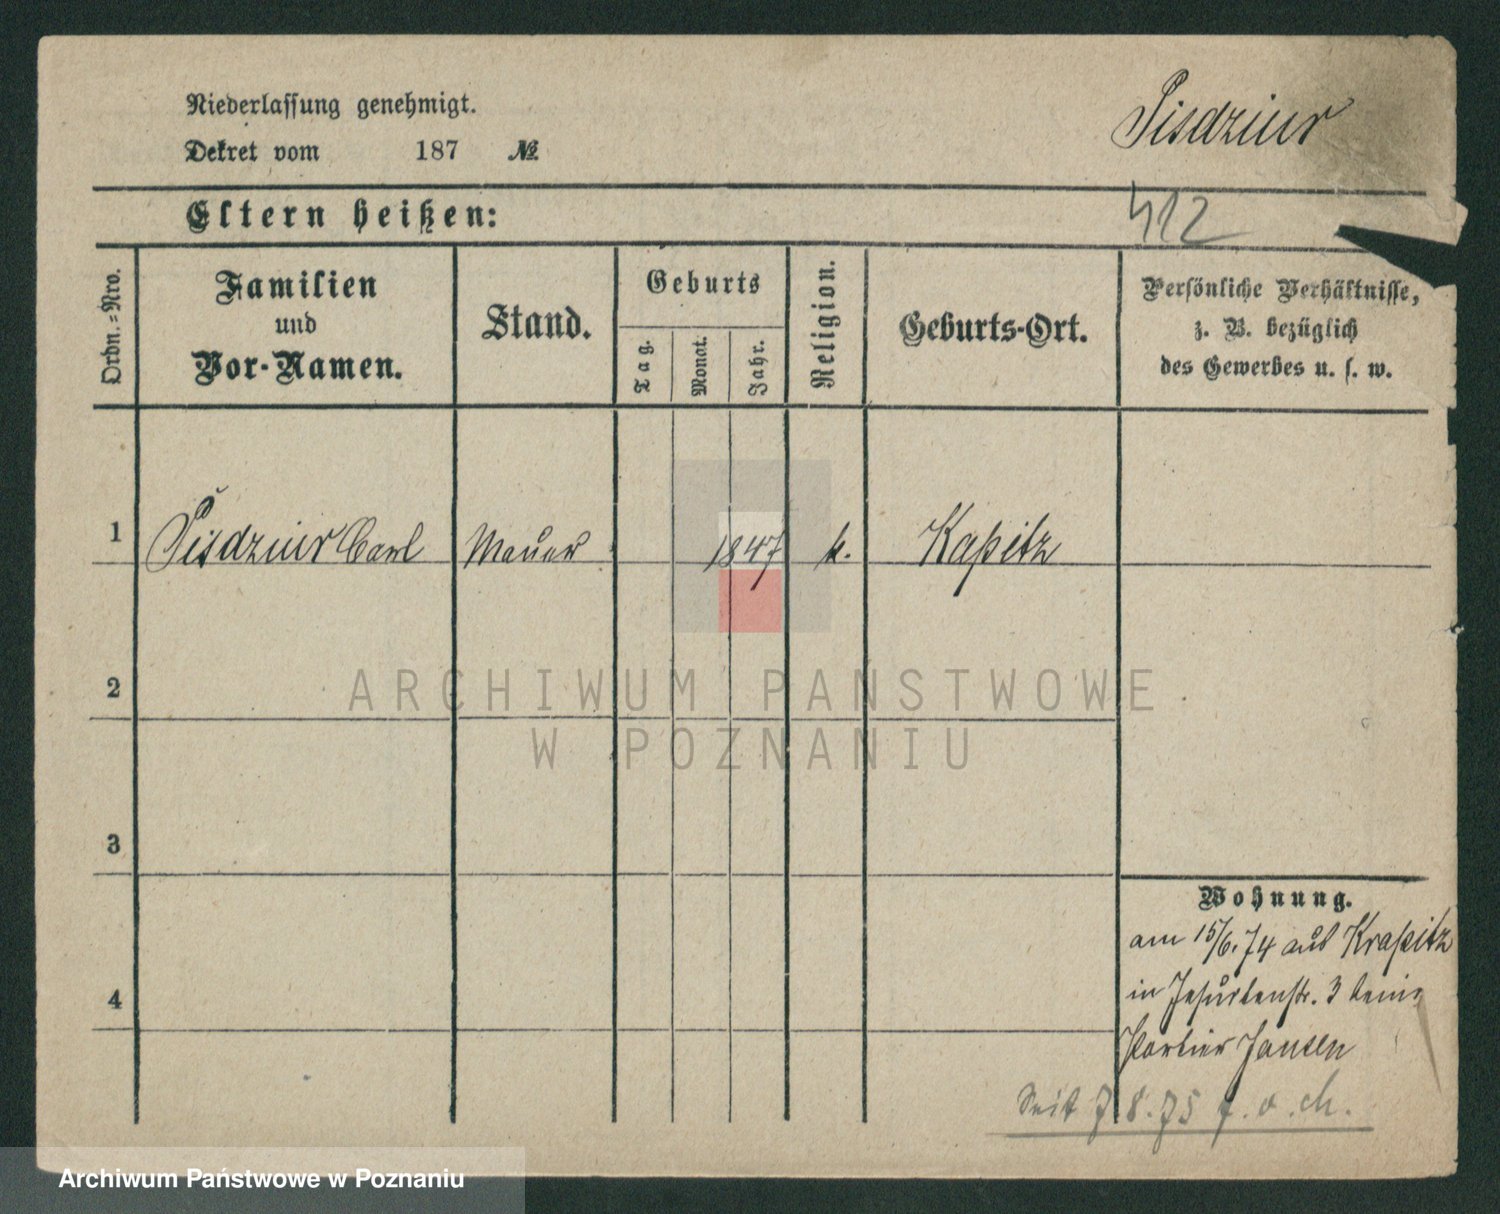 Niederlassung genehmigt.
Dekret vom 187 №
Pisdziur
412
Eltern heißen:
Ordn.-Nro.
Familien
und
Vor-Namen.
Stand.
Geburts
Tag.
Monat.
Jahr.
Religion.
Geburts-Ort.
Persönliche Verhältnisse,
z. B. bezüglich
des Gewerbes u. s. w.
1 Pisdziur Carl Maurer 1847 k. Kapitz
2
3
4
Wohnung.
am 15/6. 74 aus Krapitz
in Jesuitenstr. 3 beim
Portier Jansen
Seit 7 8. 75 f. o. ch.
ARCHIWUM PAŃSTWOWE
W POZNANIU
Archiwum Państwowe w Poznaniu